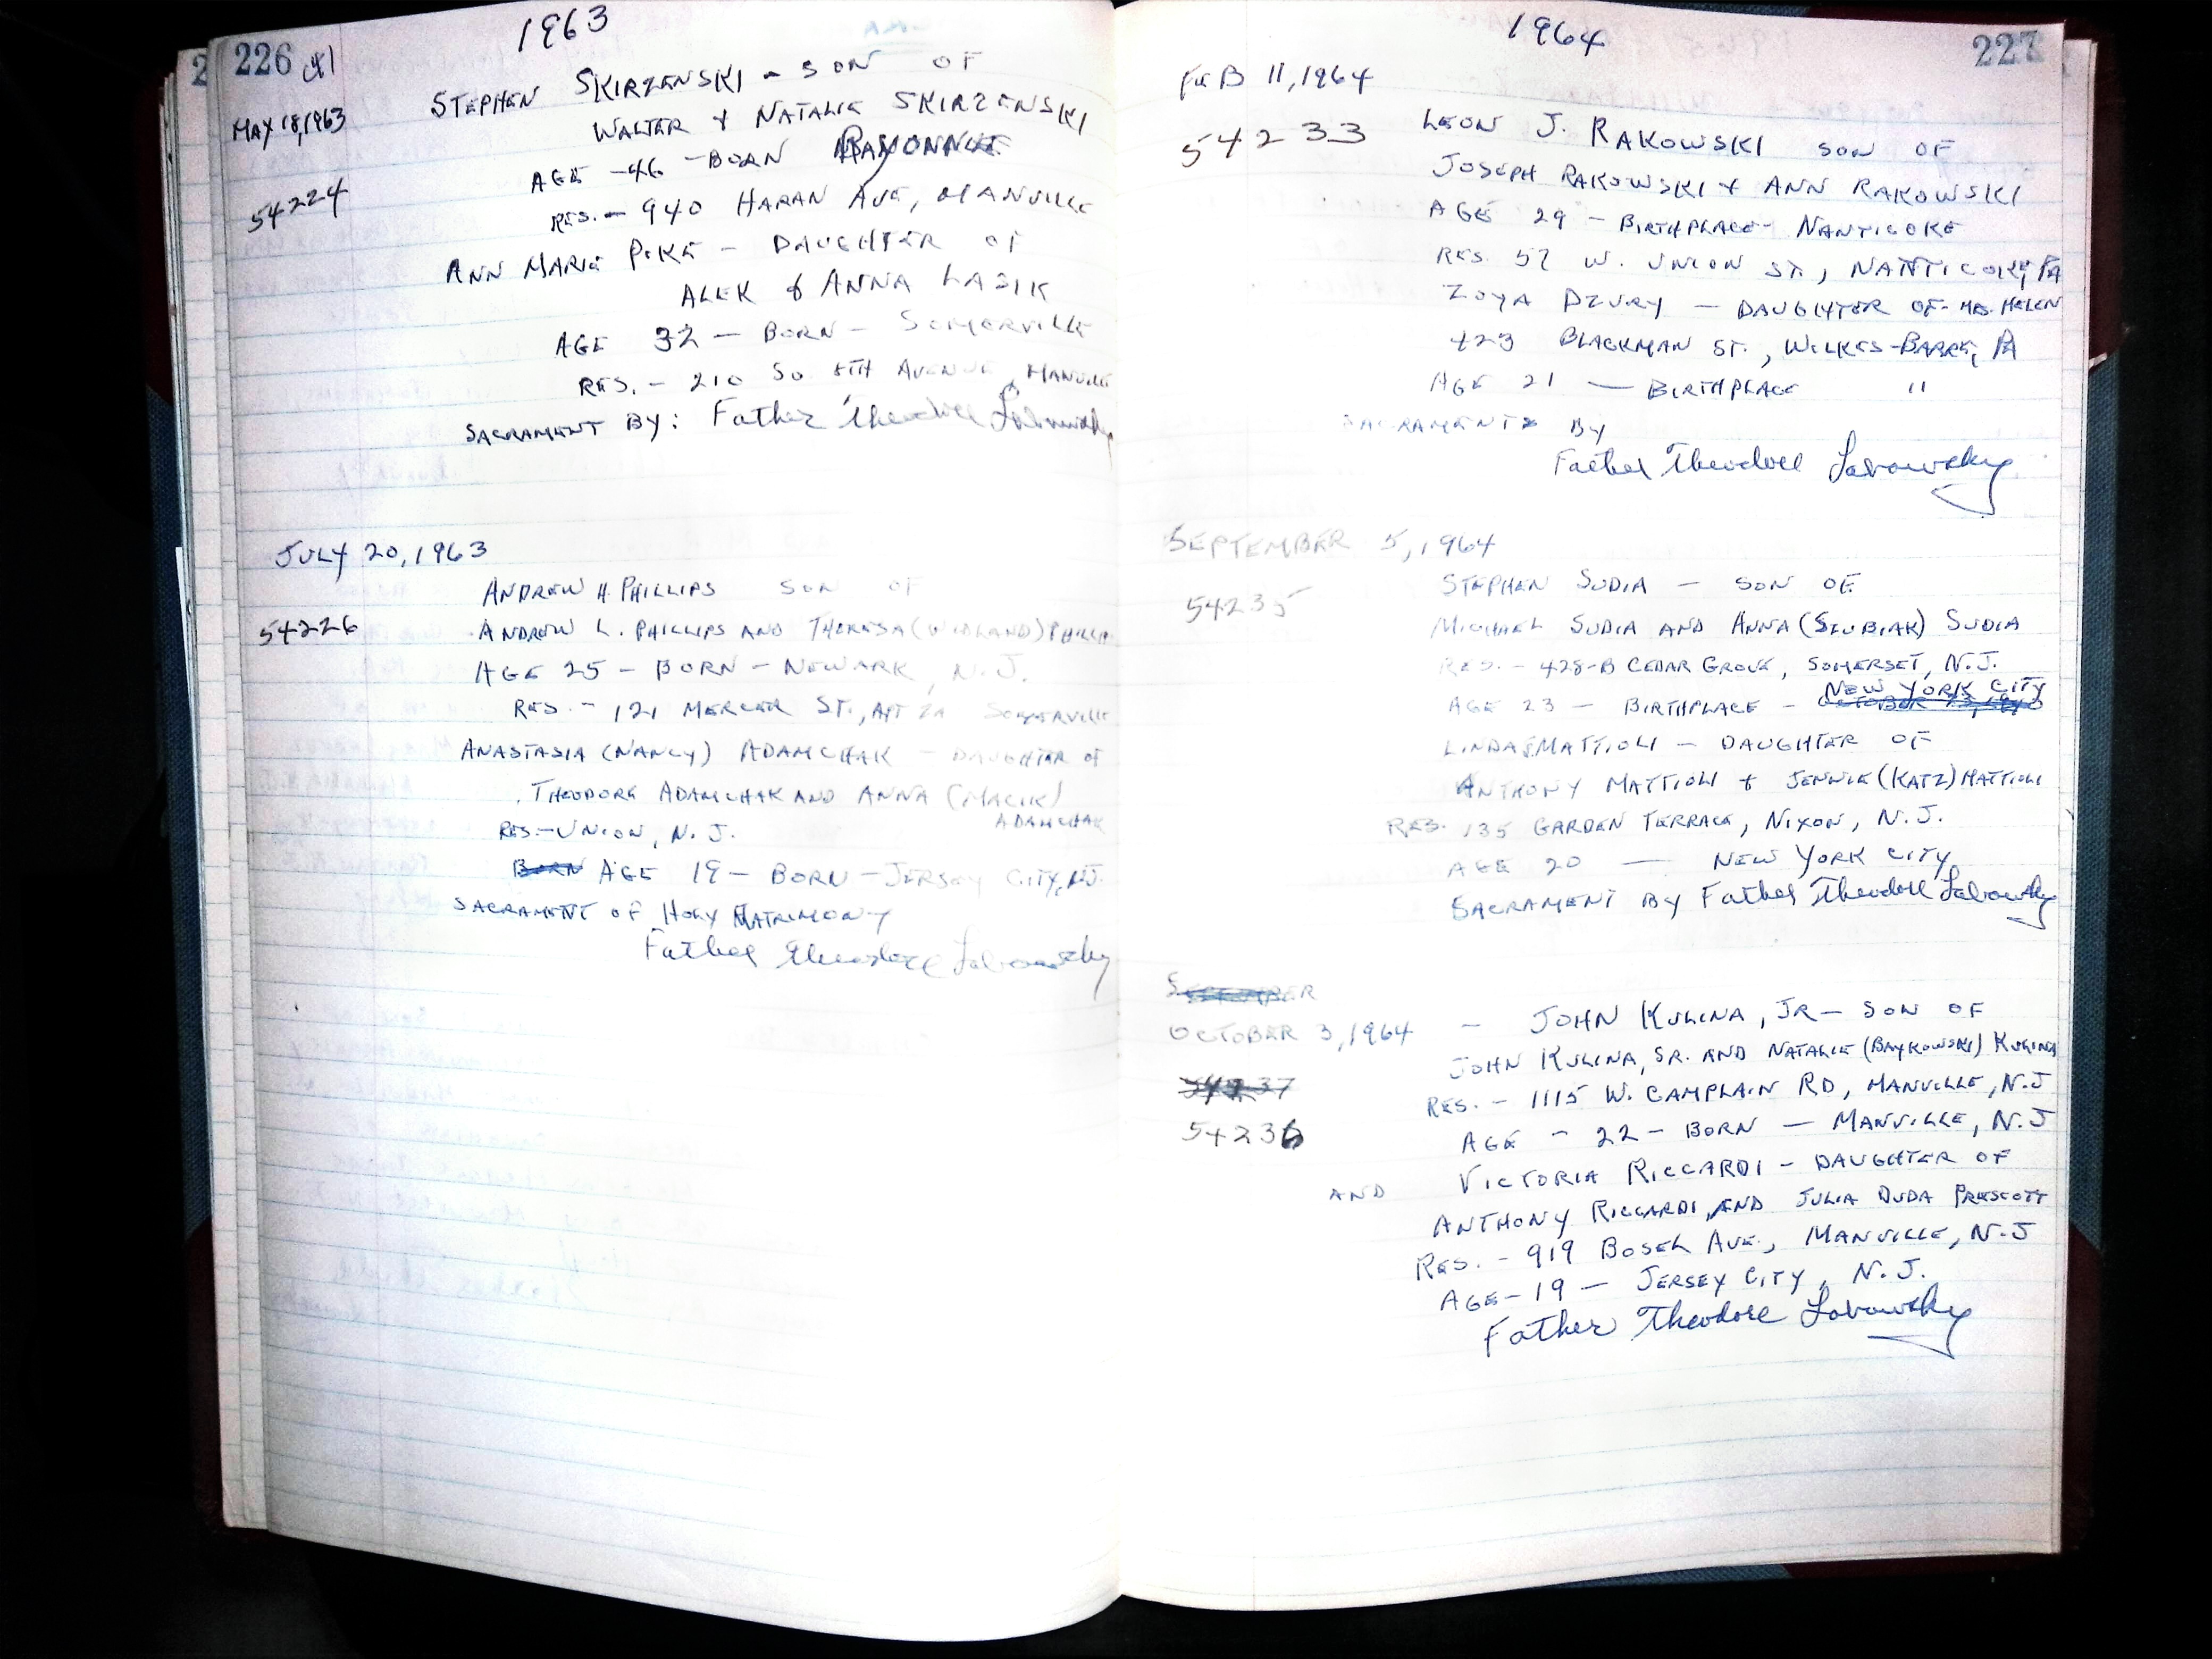 226
1963
MAY 18, 1963
STEPHEN SKIRZENSKI - SON OF
WALTER & NATALIE SKIRZENSKI
AGE - 46 - BORN BAYONNE
54224
RES. - 940 HARAN AVE, MANVILLE
ANN MARIE PIKE - DAUGHTER OF
ALEK & ANNA LASIK
AGE 32 - BORN - SOMERVILLE
RES. - 210 SO 8TH AVENUE, MANVILLE
SACRAMENT BY: Father Theodore Labowsky
JULY 20, 1963
ANDREW H. PHILLIPS SON OF
54226
ANDREW L. PHILLIPS AND THERESA (WIDLAND) PHILLIP
AGE 25 - BORN - NEWARK, N.J.
RES. - 121 MERCER ST., APT 2A SOMERVILLE
ANASTASIA (NANCY) ADAMCHAK - DAUGHTER OF
THEODORE ADAMCHAK AND ANNA (MACIK)
ADAMCHAK
RES. - UNION, N.J.
BORN AGE 19 - BORN - JERSEY CITY, N.J.
SACRAMENT OF HOLY MATRIMONY
Father Theodore Labowsky
1964
227
FEB 11, 1964
54233
LEON J. RAKOWSKI SON OF
JOSEPH RAKOWSKI & ANN RAKOWSKI
AGE 29 - BIRTHPLACE - NANTICOKE
RES. 57 W. UNION ST., NANTICOKE, PA
ZOYA DZURY - DAUGHTER OF - MRS. HELEN
423 BLACKMAN ST., WILKES-BARRE, PA
AGE 21 - BIRTHPLACE "
SACRAMENTS BY
Father Theodore Labowsky
SEPTEMBER 5, 1964
54235
STEPHEN SUDIA - SON OF
MICHAEL SUDIA AND ANNA (SZUBIAK) SUDIA
RES. - 428-B CEDAR GROVE, SOMERSET, N.J.
NEW YORK CITY
AGE 23 - BIRTHPLACE - OCTOBER
LINDA MATTIOLI - DAUGHTER OF
ANTHONY MATTIOLI & JENNIE (KATZ) MATTIOLI
RES. 135 GARDEN TERRACE, NIXON, N.J.
AGE 20 - NEW YORK CITY
SACRAMENT BY Father Theodore Labowsky
SEPTEMBER
OCTOBER 3, 1964 - JOHN KULINA, JR - SON OF
JOHN KULINA, SR. AND NATALIE (BAYKOWSKI) KULINA
54237
RES. - 1115 W. CAMPLAIN RD, MANVILLE, N.J
54236
AGE - 22 - BORN - MANVILLE, N.J
AND VICTORIA RICCARDI - DAUGHTER OF
ANTHONY RICCARDI, AND JULIA DUDA PRESCOTT
RES. - 919 BOSEL AVE., MANVILLE, N.J
AGE - 19 - JERSEY CITY, N.J.
Father Theodore Labowsky